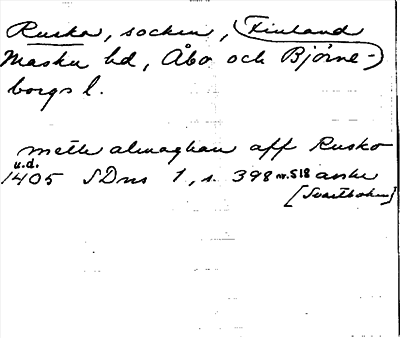 Rusko, socken, Finland
Masku hd, Åbo och Björne-
borgs l.
mette almoghan aff Rusko
u.d.
1405 SDns 1, s. 398 nr. 518 avskr
[Svartboken]